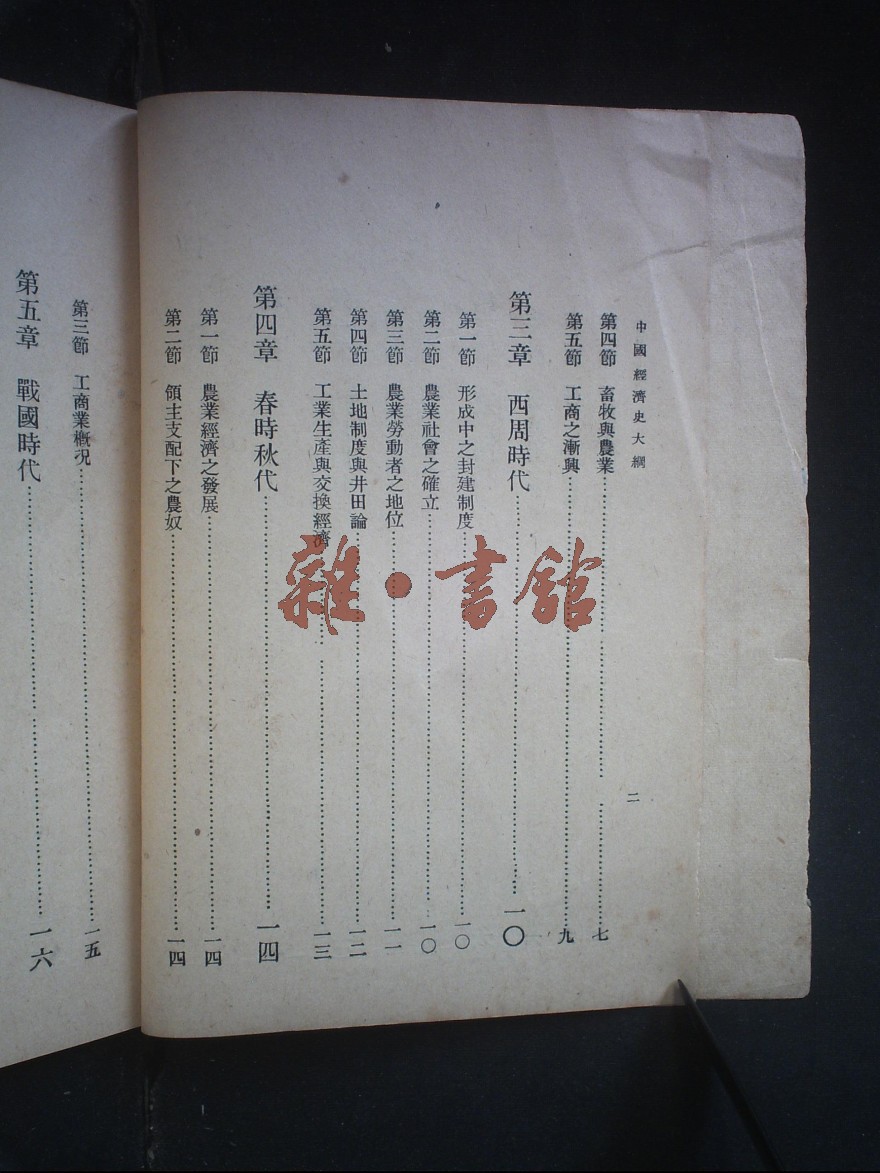 中國經濟史大綱
二
第四節 畜牧與農業……七
第五節 工商之漸興……九
第三章 西周時代……一〇
第一節 形成中之封建制度……一〇
第二節 農業社會之確立……一〇
第三節 農業勞動者之地位……一一
第四節 土地制度與井田論……一二
第五節 工業生產與交換經濟……一三
第四章 春時秋代……一四
第一節 農業經濟之發展……一四
第二節 領主支配下之農奴……一四
第三節 工商業概況……一五
第五章 戰國時代……一六
雜·書館